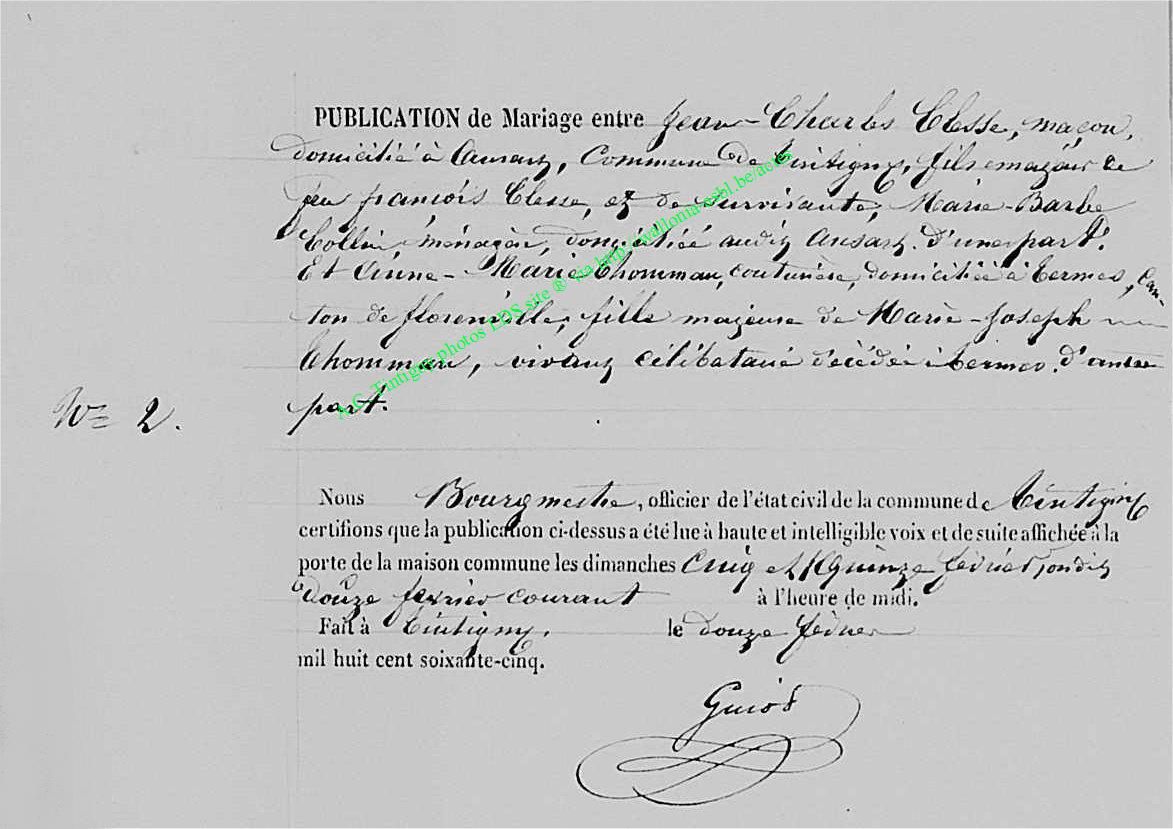 PUBLICATION de Mariage entre Jean-Charles Clesse, maçon,
domicilié à Ansart, Commune de Tintigny, fils majeur de
feu françois Clesse, et de survivante, Marie-Barbe
Collin ménagère, domiciliée audit Ansart. d'une part.
Et Anne-Marie Thomman, couturière, domiciliée à Termes, Can-
ton de florenville, fille majeure de Marie-Joseph
Thomman, vivant célibataire décédée à Termes. d'autre
part.
N° 2.
A.C. Tintigny photos LDS site ® via http://wallonia-asbl.be/actes
Nous Bourgmestre, officier de l'état civil de la commune de Tintigny
certifions que la publication ci-dessus a été lue à haute et intelligible voix et de suite affichée à la
porte de la maison commune les dimanches Cinq et février
Douze février courant à l'heure de midi.
Fait à Tintigny. le douze février
mil huit cent soixante-cinq.
Guiot